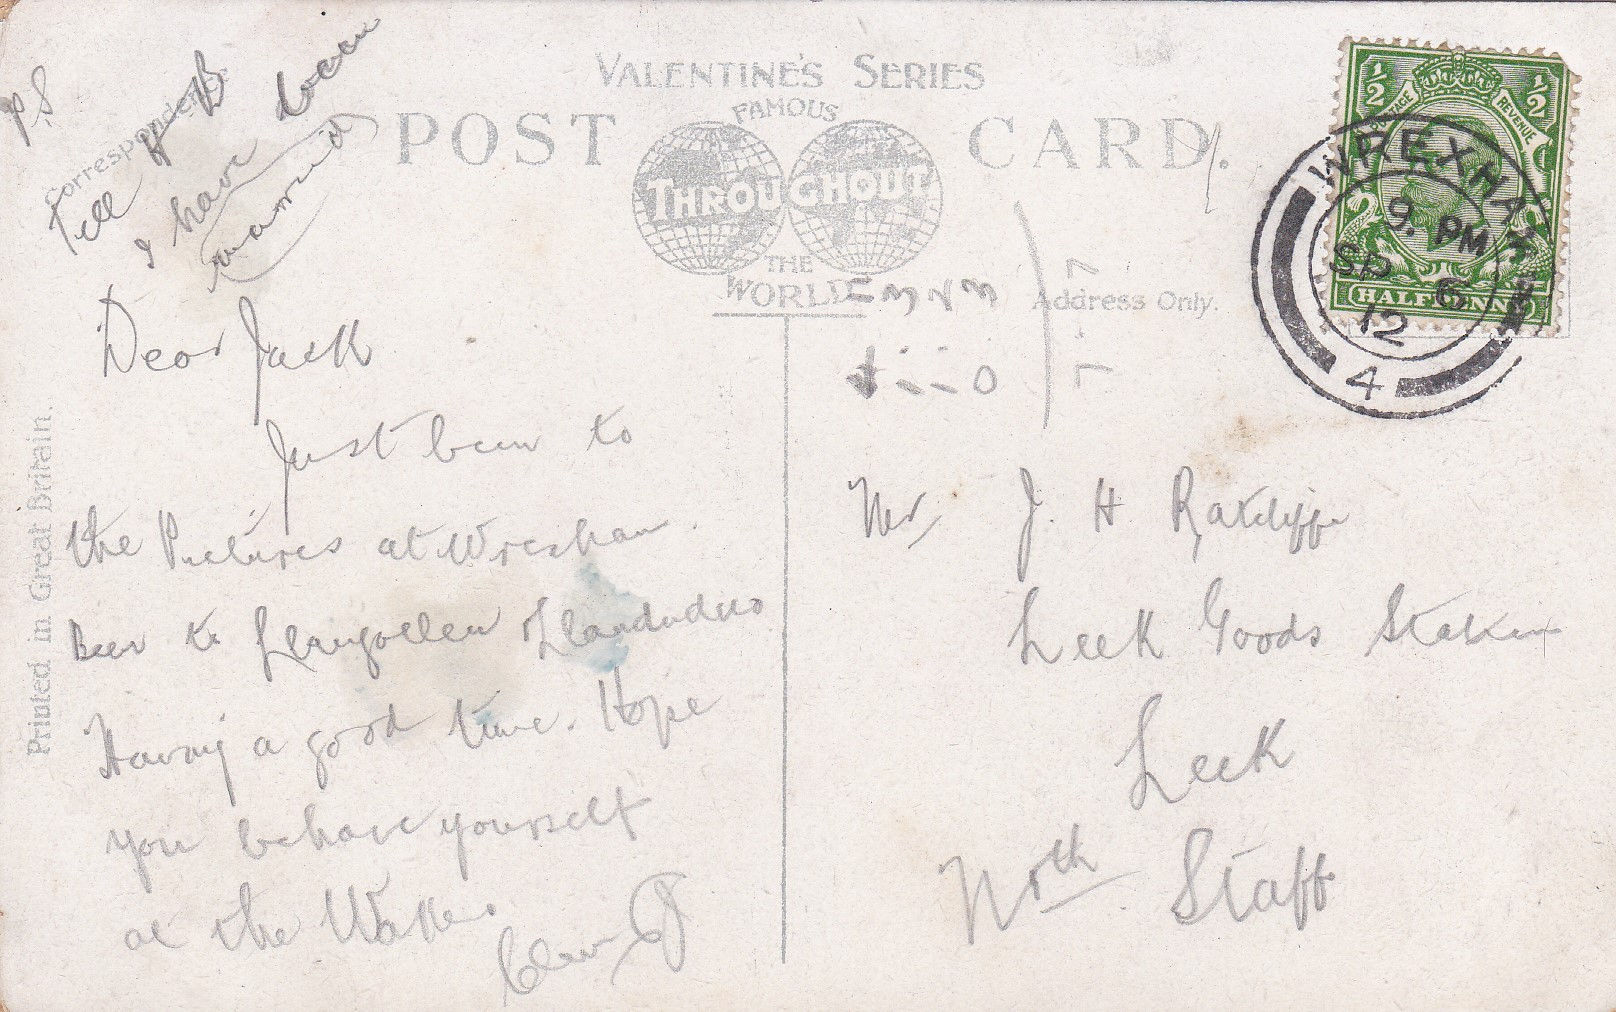 VALENTINE'S SERIES
POST CARD.
FAMOUS
THROUGHOUT
THE
WORLD
Correspondence
Address Only.
Printed in Great Britain.
P.S
Tell H B
I have been
Dear Jack
Just been to
the Pictures at Wrexham.
Been to Llangollen Llandudno
Having a good time. Hope
you behave yourself
at the Wakes.
Mr J. H Ratcliffe
Leek Goods Station
Leek
North Staff
½ ½
POSTAGE REVENUE
HALFPENNY
WREXHAM
9. PM
SP 6
12
4